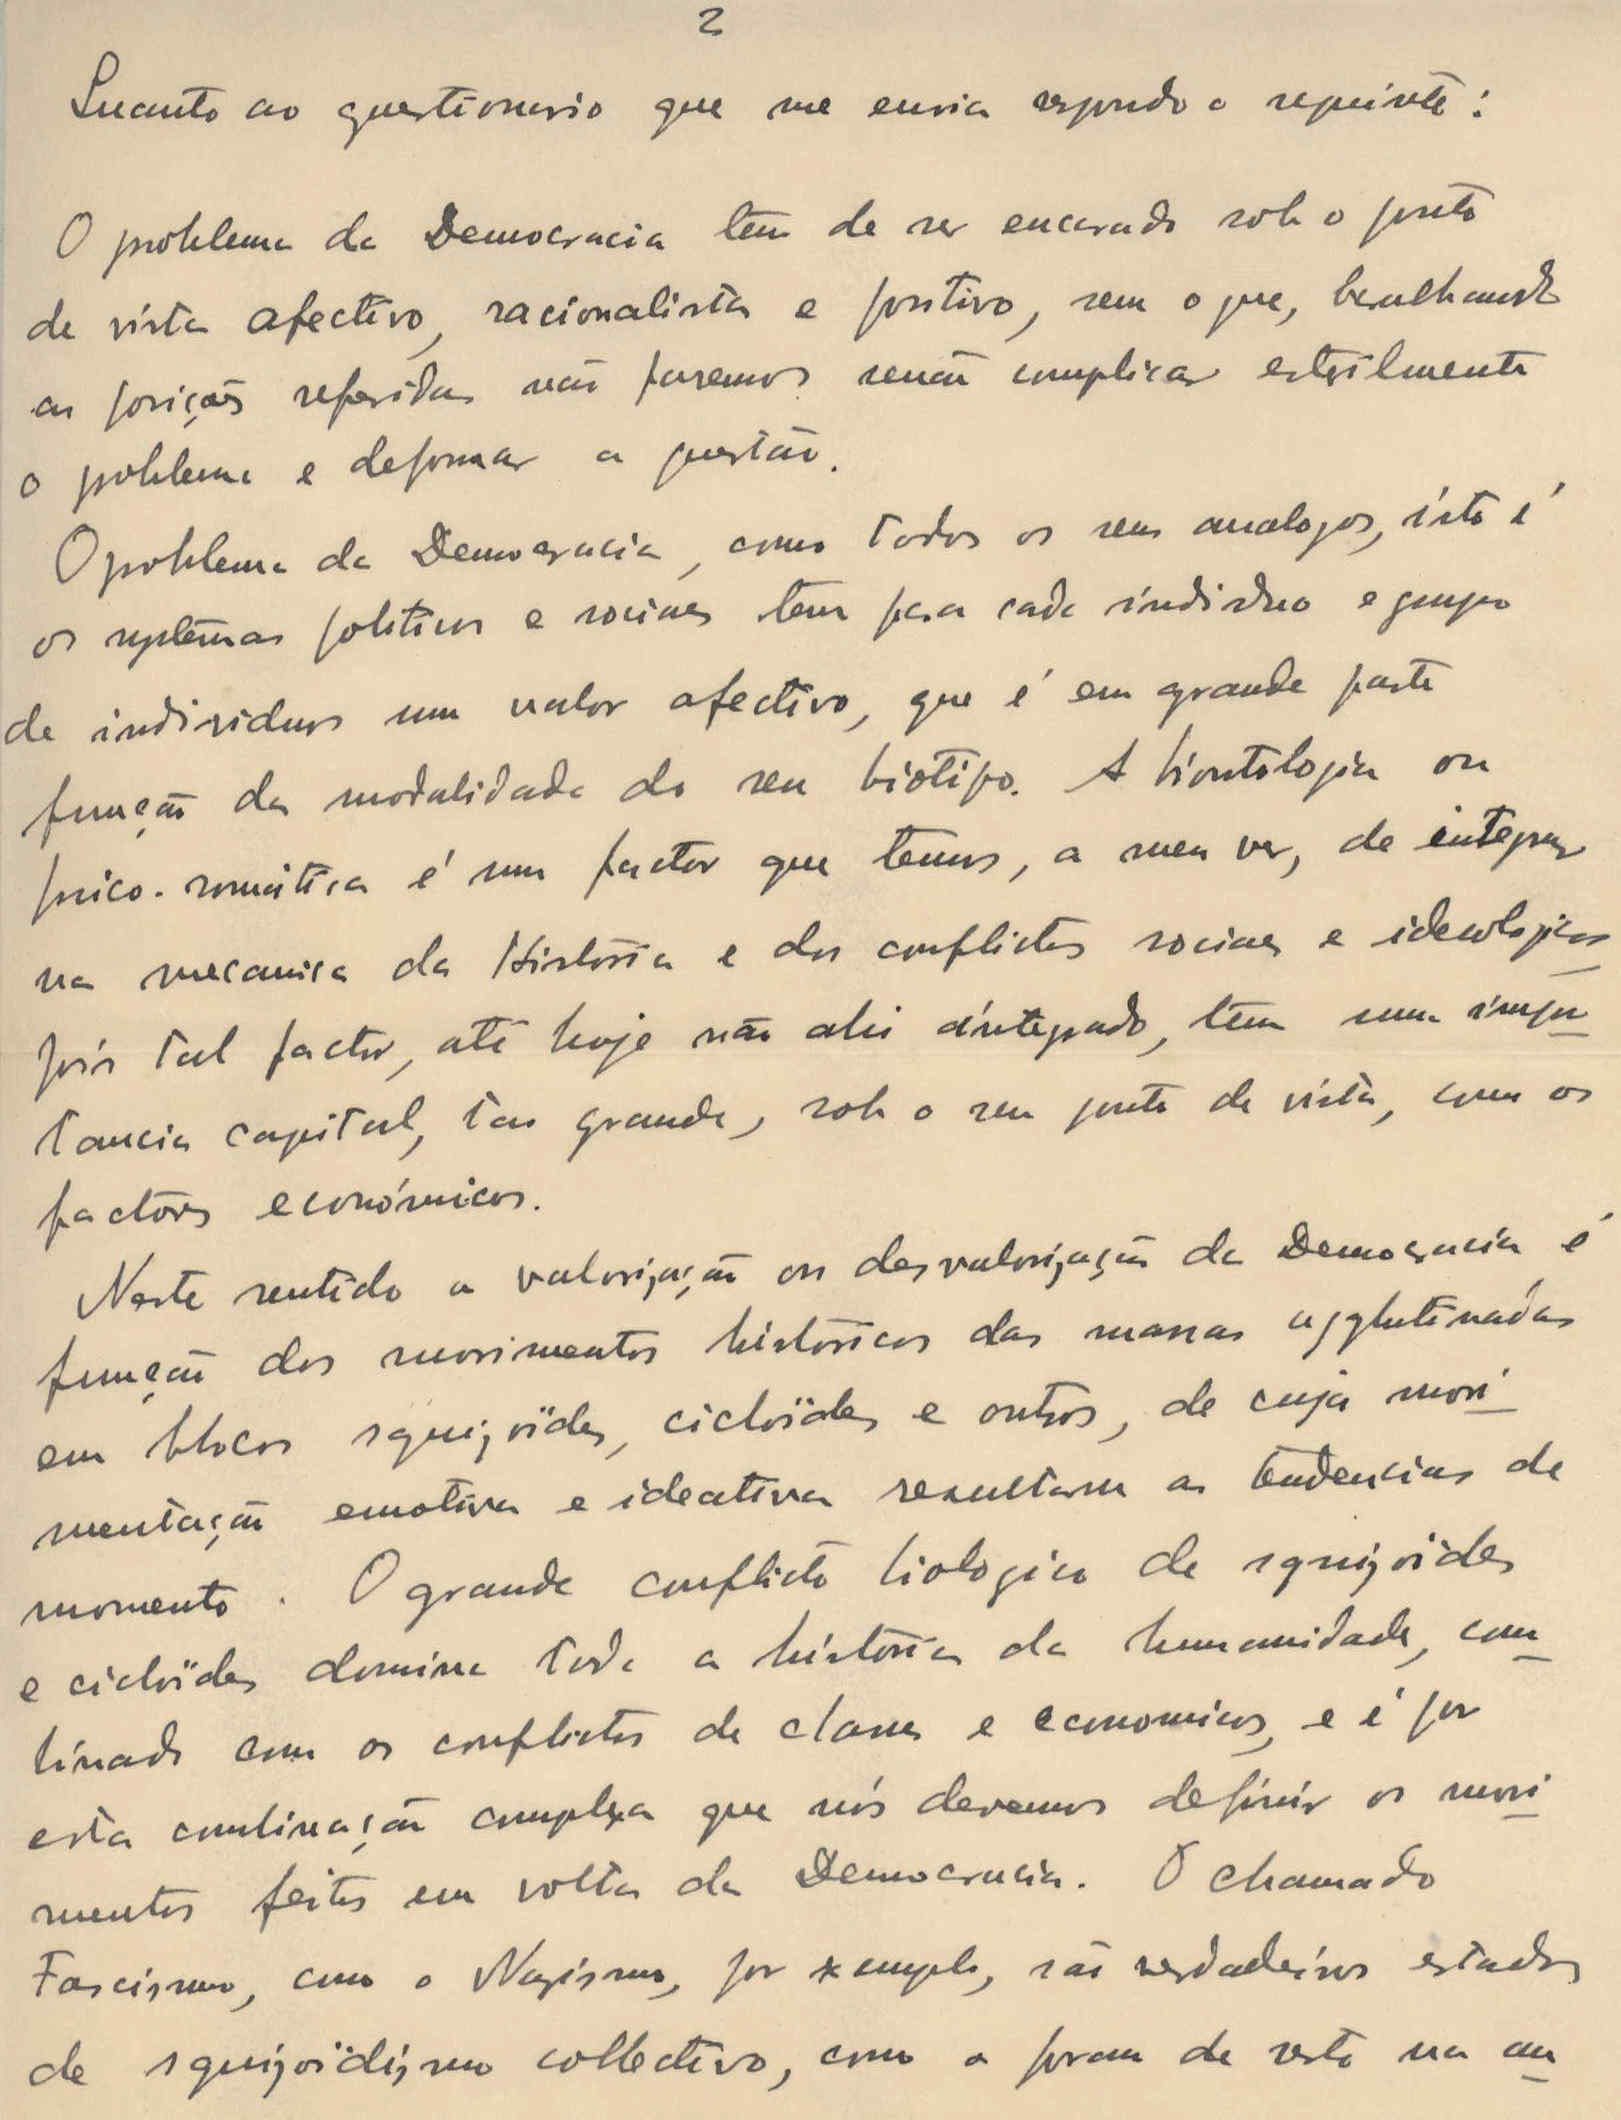 2
Quanto ao questionario que me envia respondo o seguinte:
O problema da Democracia tem de ser encarado sob o ponto
de vista afectivo, racionalista e positivo, sem o que, baralhando
as posições referidas não faremos senão complicar esterilmente
o problema e deformar a questão.
O problema da Democracia, como todos os seus analogos, isto é
os systemas politicos e sociaes tem para cada individuo e grupo
de individuos um valor afectivo, que é em grande parte
função da modalidade do seu biótipo. A biontologia ou
psico-somática é um factor que temos, a meu ver, de integrar
na mecanica da História e dos conflictos sociaes e ideologicos
pois tal factor, até hoje não ahi integrado, tem uma impor
tancia capital, tão grande, sob o seu ponto de vista, como os
factores económicos.
Neste sentido a valorização ou desvalorização da Democracia é
função dos movimentos históricos das massas agglutinadas
em blocos squizoïdes, cicloïdes e outros, de cuja movi
mentação emotiva e ideativa resultam as tendencias de
momento. O grande conflicto biologico de squizoides
e cicloïdes domina toda a história da humanidade, com
binado com os conflictos de classes e economicos, e é por
esta combinação complexa que nós devemos definir os movi
mentos feitos em volta da Democracia. O chamado
Fascismo, como o Nazismo, por exemplo, são verdadeiros estados
de squizoïdismo collectivo, como o foram de resto na an